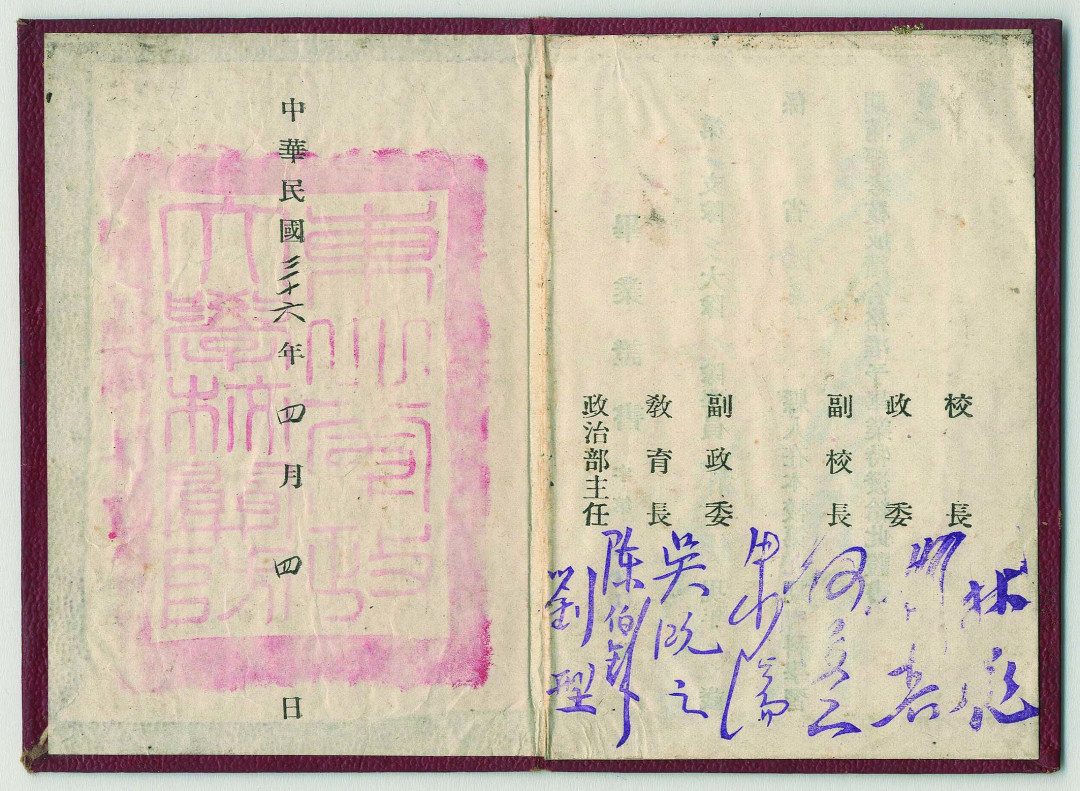 校長 林彪
政委
副校長 何長工
副政委
教育長 吳溉之
陳伯鈞
政治部主任 劉型
中華民國三十六年四月四日
東北軍政
大學